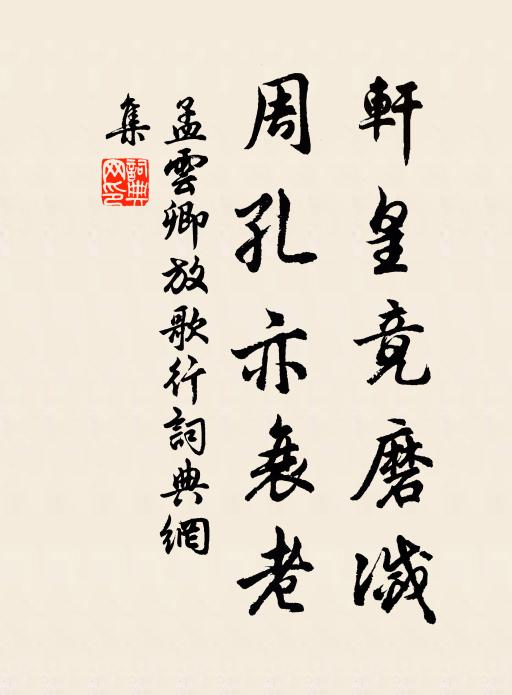 軒皇竟磨滅
周孔亦衰老
孟雲卿放歌行詞典網
集
詞典網印